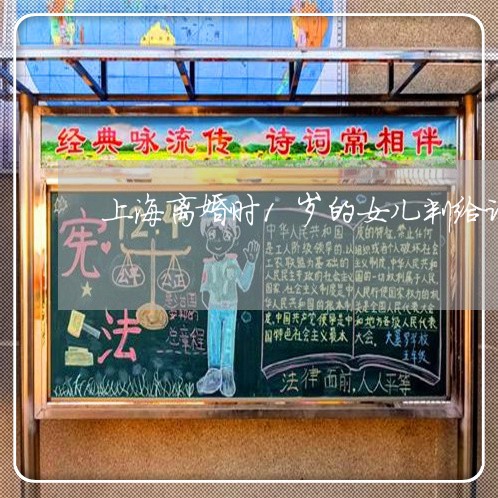 经典咏流传 诗词常相伴
上海离婚时1岁的女儿判给
宪
法
公平
公正
总章程
中华人民共和国
是工人阶级领导的,以
工农联盟为基础的
人民民主专政的社会主义
国家,社会主义制度是中
华人民共和国的根本制
度,中国共产党领导是中
国特色社会主义最本
质的特征,禁止任何
组织或者个人破坏社会
主义制度,中华人民共和
国的一切权利属于人民,
人民行使国家权力的机
关是全国人民代表大会
和地方各级人民代表
大会。
五年级
法律面前,人人平等